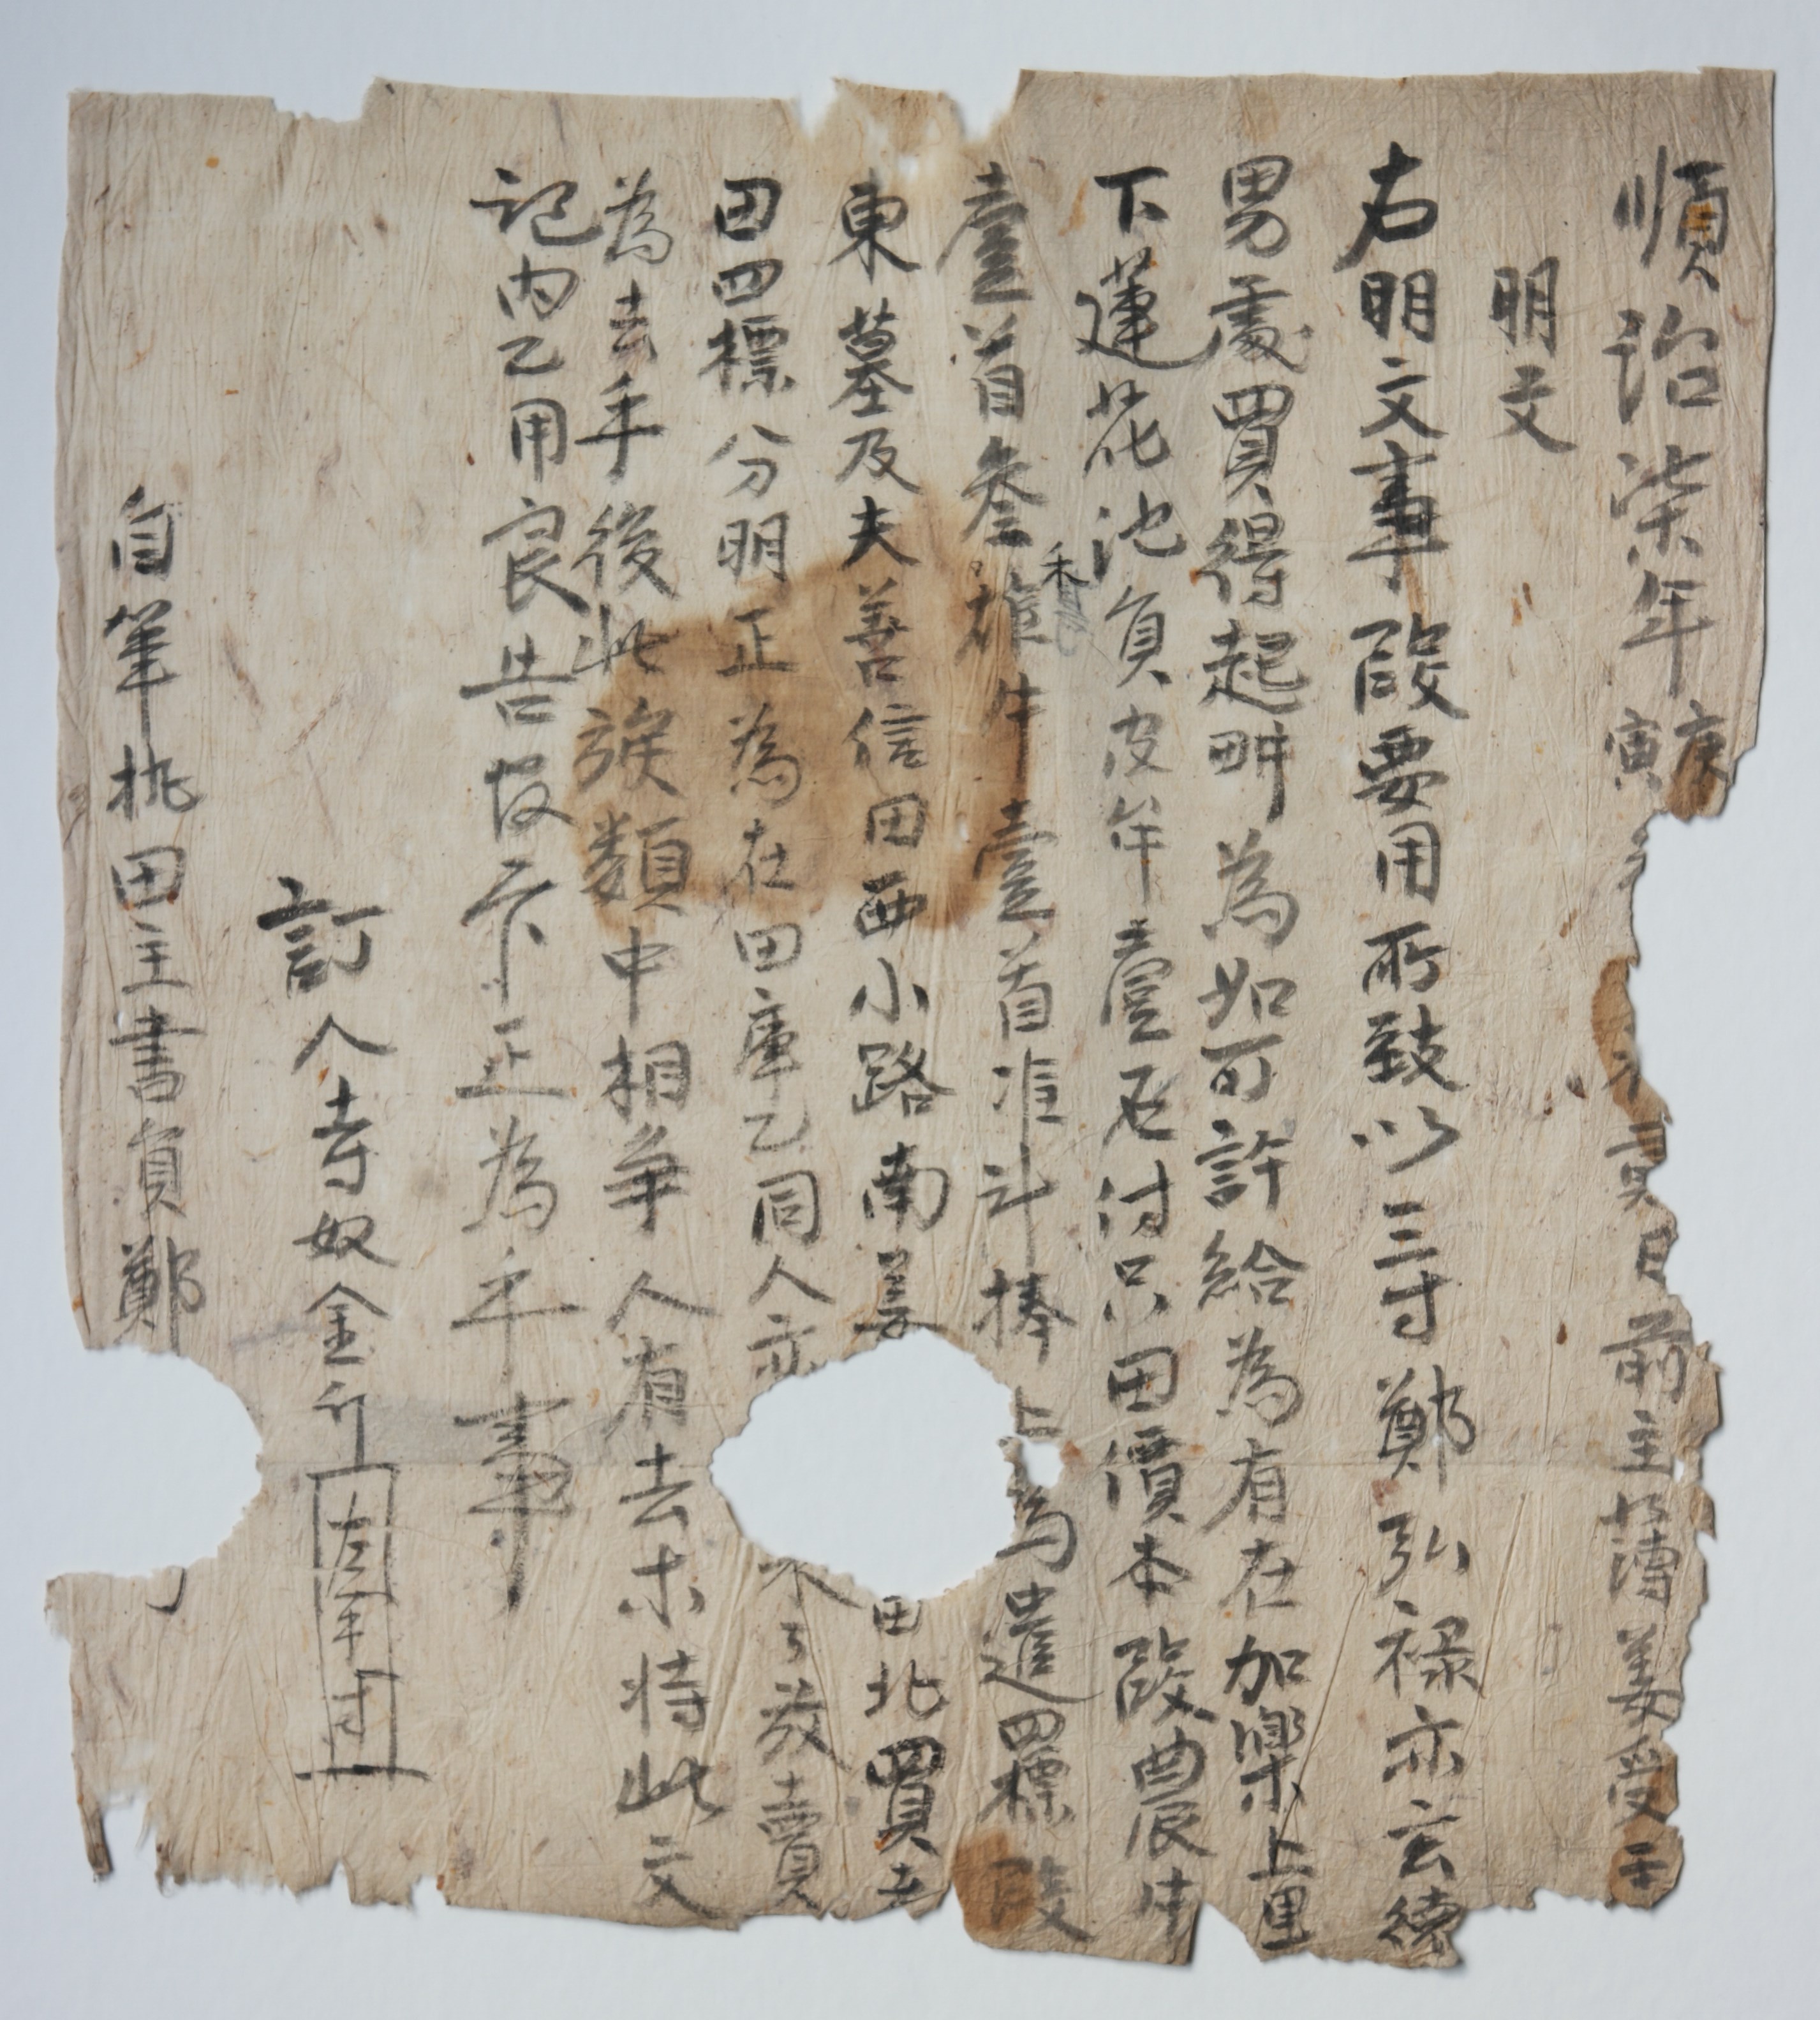 順治柒年庚寅 月 日前主簿姜受
明文
右明文事段要用所致以三寸鄭弘祿亦玄德
男處買得起畊為如可許給為有在加樂上里
下蓮花池員皮牟壹石付只田價本段農牛
壹首叁雄牛壹首准計捧上為遣四標段
東墓及夫善信田西小路南姜 田北買
田四標分明正為在田庫乙同人亦 放賣
為去乎後此族類中相爭人有去木特此文
記內乙用良告官卞正為乎事
訂人寺奴金 左手寸
自筆執田主書員鄭